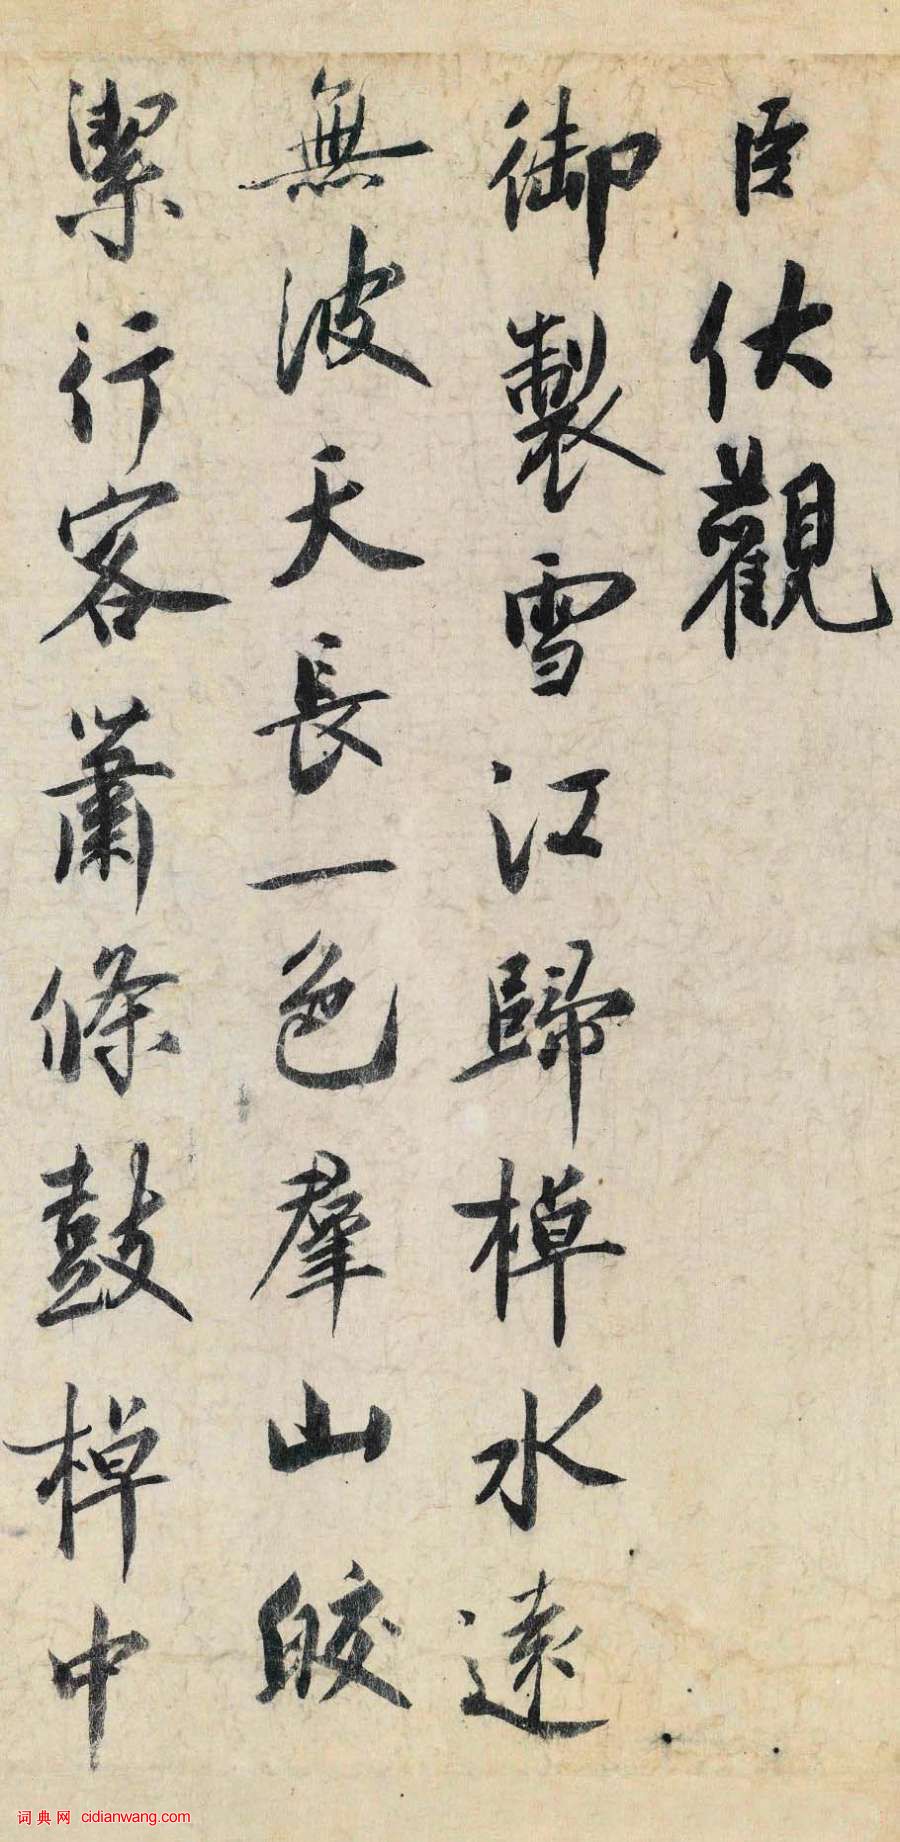 臣伏觀
御製雪江歸棹水遠
無波天長一色羣山皎
潔行客蕭條鼓棹中
词典网 cidianwang.com